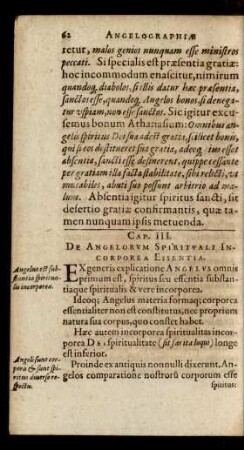 62 ANGELOGRAPHIÆ
retur, malos genios nunquam esse ministros
peccati. Si specialis est præsentia gratiæ:
hoc incommodum enascitur, nimirum
quandoq; diabolos, si illis datur hæc præsentia,
sanctos esse, quandoq; Angelos bonos, si denega-
tur uspiam, non esse sanctos. Sic igitur excu-
semus bonum Athanasium: Omnibus an-
gelis spiritus Dei sua adest gratia, scilicet bonis,
qui si eos destitueret sua gratia, adeoq; iis esset
absentia, sancti esse desinerent, quippe essante
per gratiam illa facta stabilitate, sibi relicti, va
mutabiles, abuti suo possunt arbitrio ad ma-
lum. Absentia igitur spiritus sancti, sit
desertio gratiæ confirmantis, quæ ta-
men nunquam ipsis metuenda.
CAP. III.
DE ANGELORVM SPIRITVALI IN-
CORPOREA ESSENTIA.
Angelus est sub-
stantia spiritua-
lis incorporea.
EX generis explicatione ANGELVS omnis
primum est, spiritus seu essentia substan-
tiaque spiritualis & vere incorporea.
Ideoq; Angelus materia formaq; corporea
essentialiter non est constitutus, nec proprium
natura sua corpus, quo constet habet.
Hæc autem incorporea spiritualitas incor-
porea DEI, spiritualitate (sit fas ita loqui) longe
est inferior.
Angeli sunt cor-
pora & sunt spi-
ritus diverso re-
spectu.
Proinde ex antiquis nonnulli dixerunt, An-
gelos comparatione nostrorũ corporum esse
spiritus: